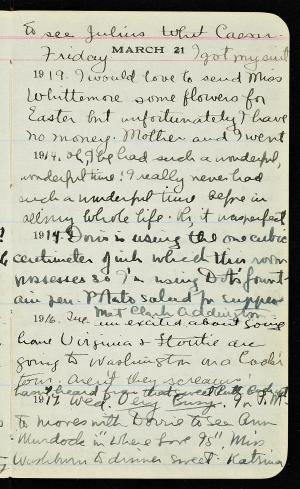 to see Julius Whit Caesar.
Friday. MARCH 21 I got my suit
1919. I would love to send Miss
Whittemore some flowers for
Easter but unfortunately I have
no money. Mother and I went
1914. oh, I've had such a wonderful,
wonderful time! I really never had
such a wonderful time before in
all my whole life. Oh, it was perfect
1914. Doris is using the one cubic
centimeter of ink which this room
possesses so I'm using Dot's fount-
ain pen. Potato salad for supper
Met Clark Addington
1916. I'm excited about Song
have Virginia & Stortie are
going to Washington on a Cook's
tour. Aren't they screamin'
haven't heard for that sweet
1917. Wed. Very Busy. In P.M.
to movies with Dorrie to see Ann
Murdock in "Where Love Is". Miss
Washburn to dinner. sweet. Katrina